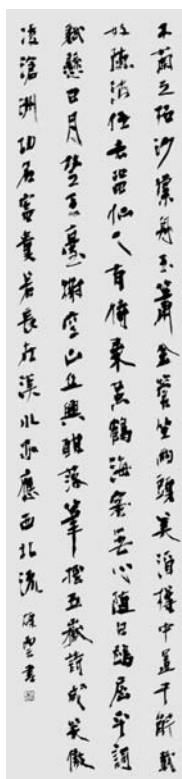 木蘭之枻沙棠舟玉簫金管坐兩頭美酒樽中置千斛載
妓隨波任去留仙人有待乘黃鶴海客無心隨白鷗屈平詞
賦懸日月楚王臺榭空山丘興酣落筆搖五嶽詩成笑傲
凌滄洲功名富貴若長在漢水亦應西北流 書